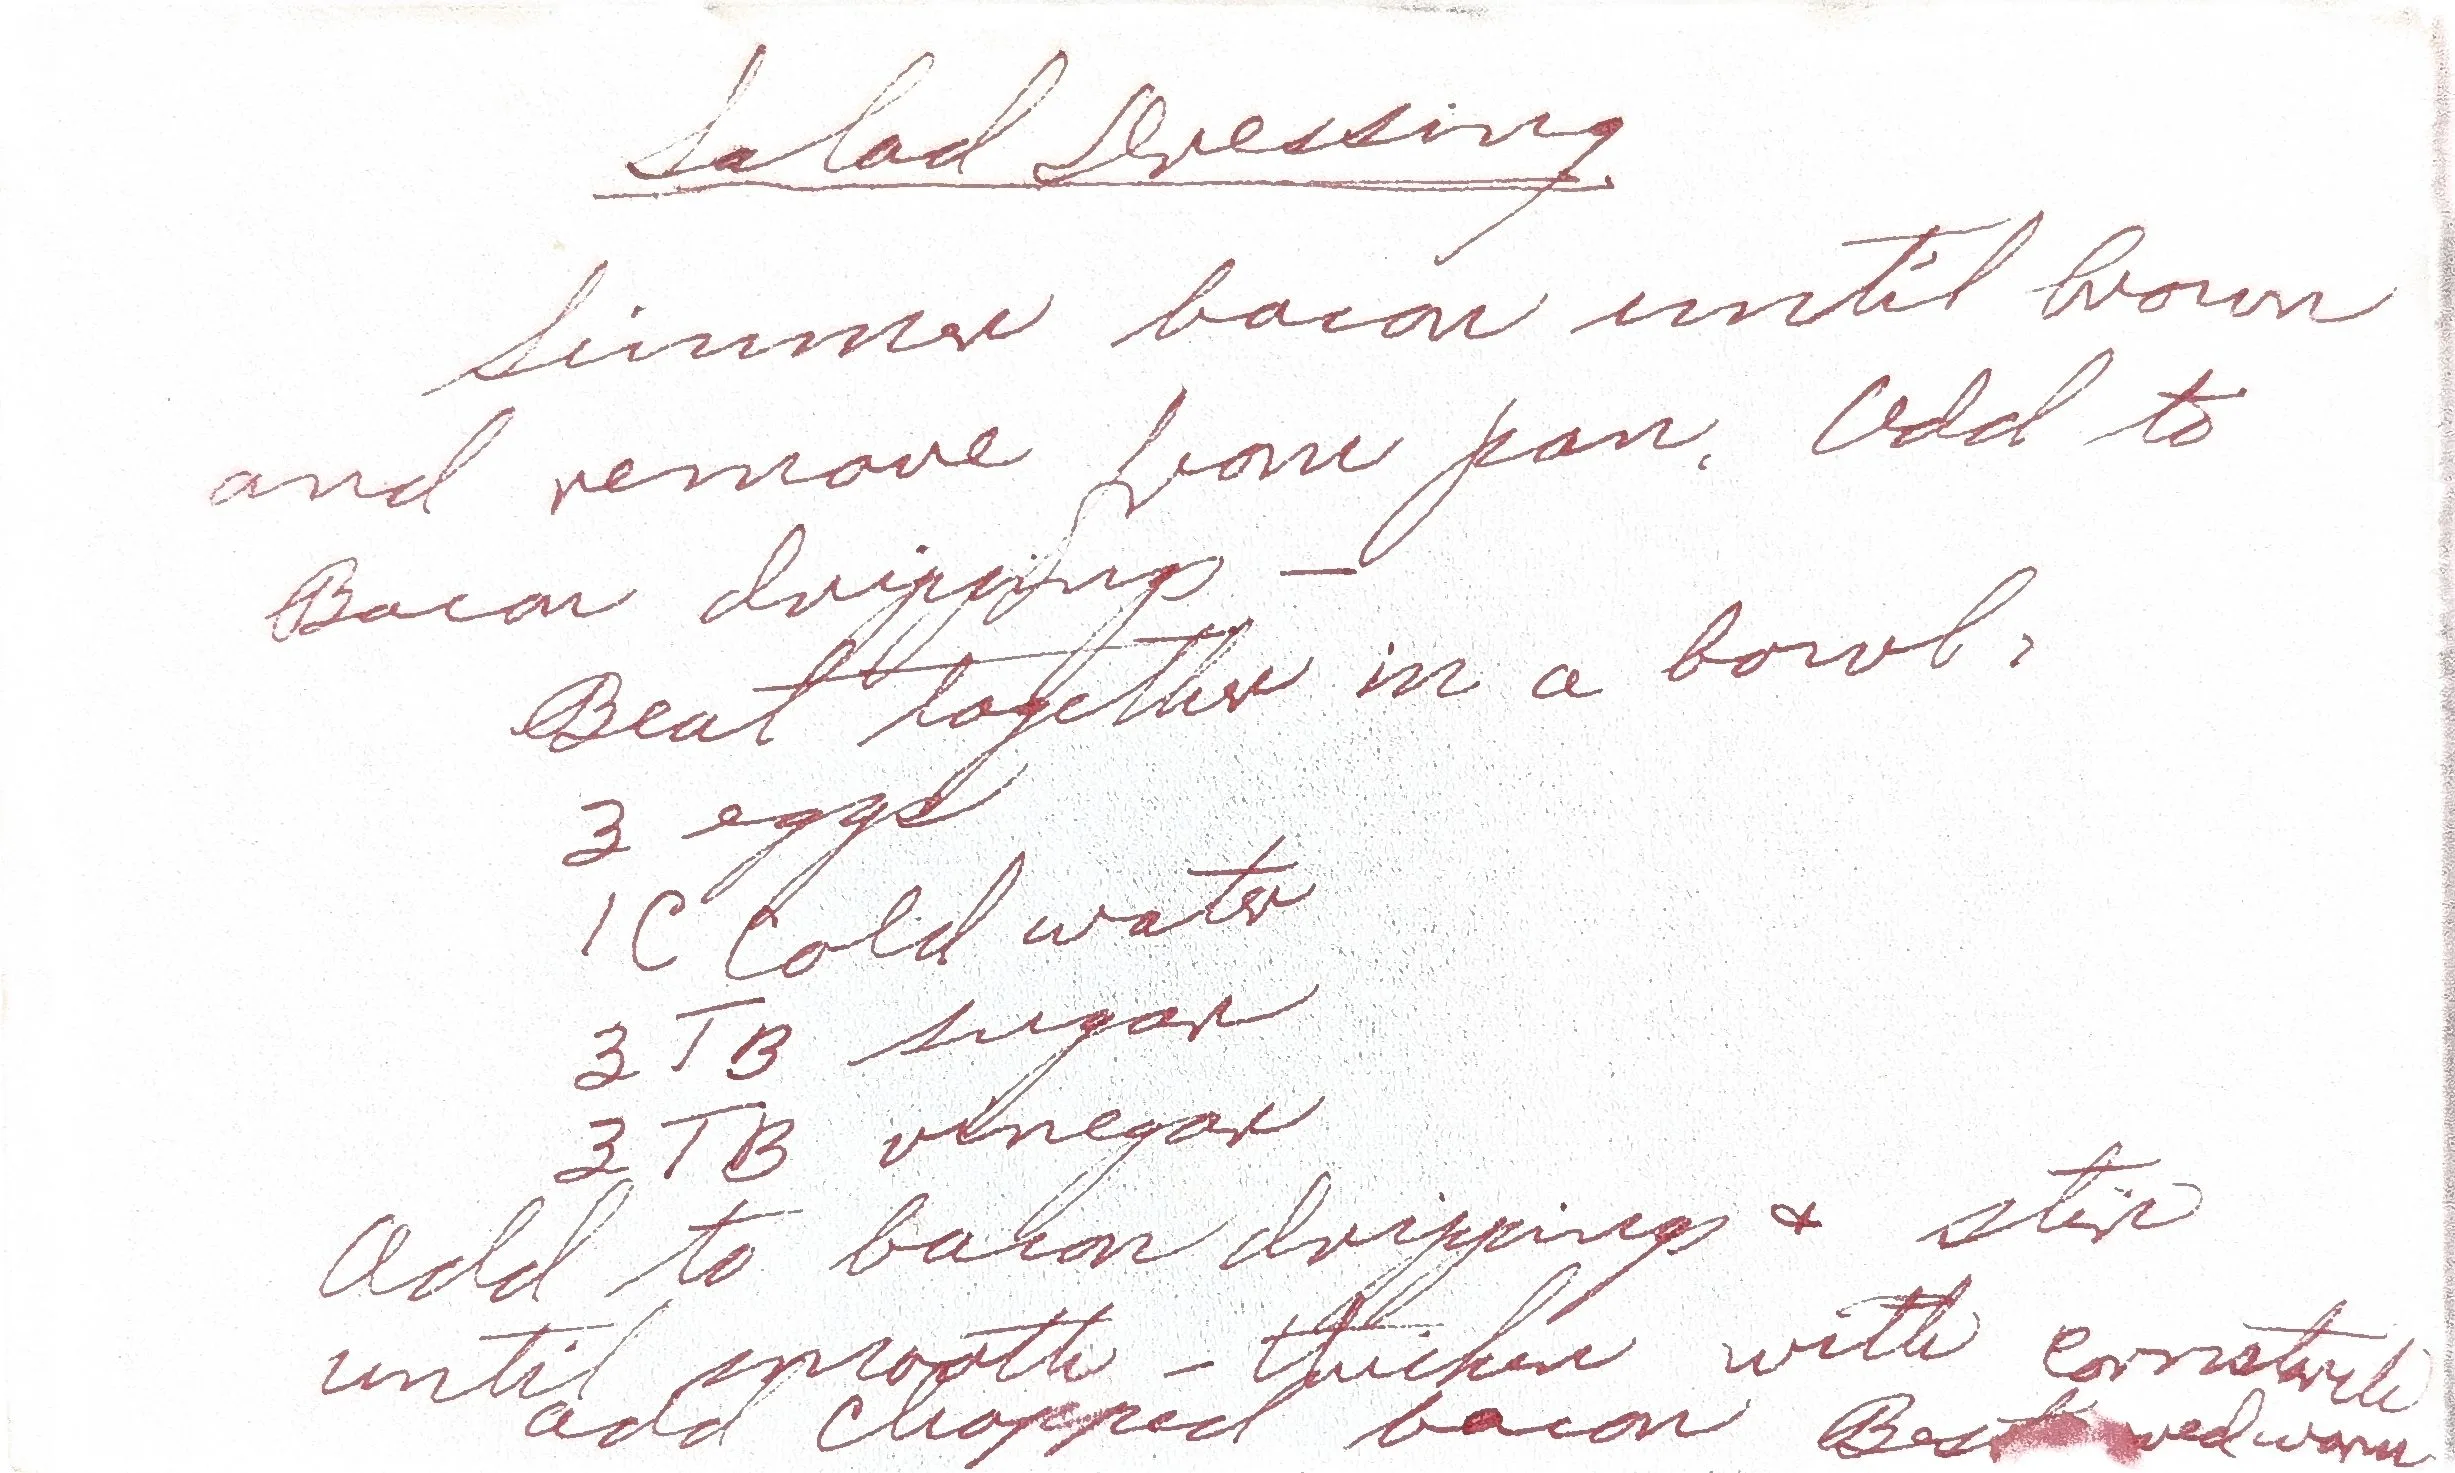 Salad Dressing
Simmer bacon until brown
and remove from pan. Add to
Bacon drippings —
Beat together in a bowl,
3 eggs
1 C Cold water
3 TB sugar
3 TB vinegar
Add to bacon drippings & stir
until smooth - thicken with cornstarch
add chopped bacon Best warm